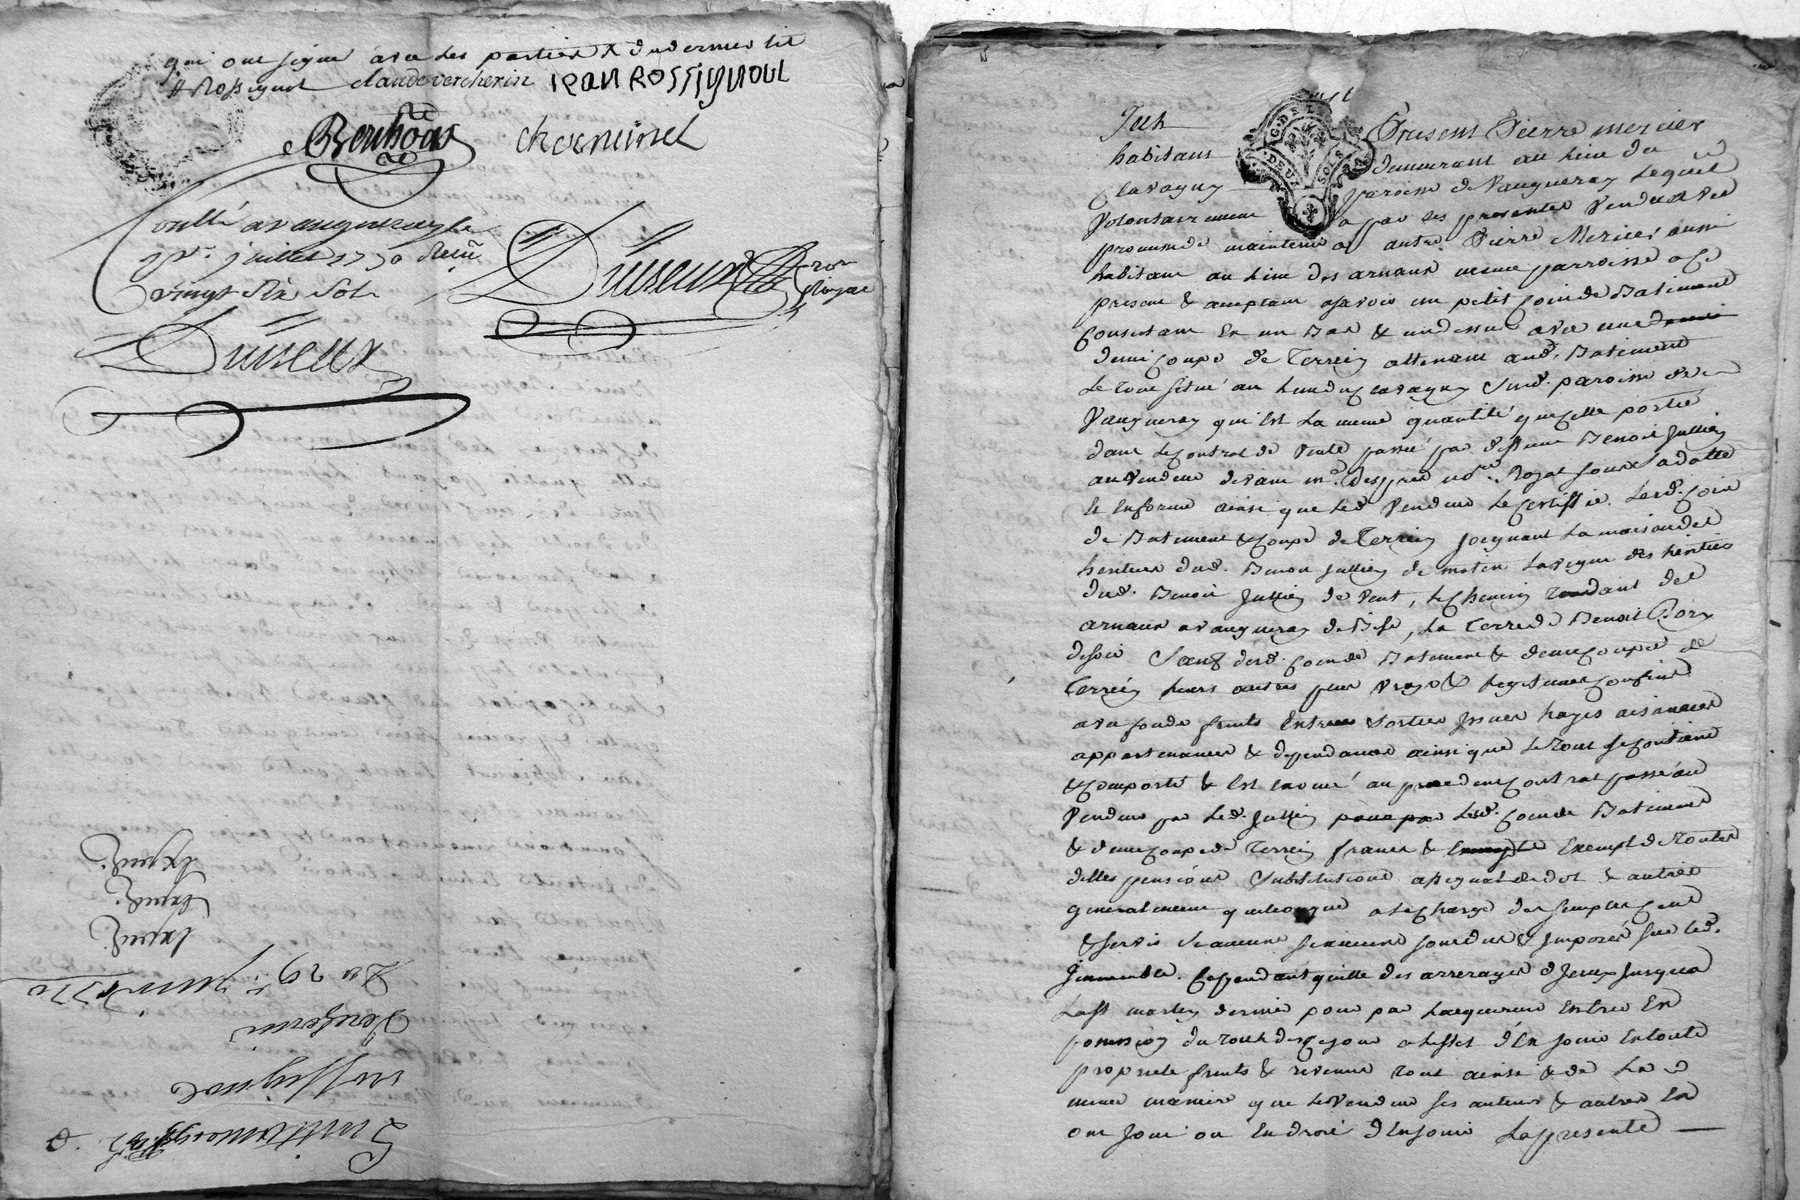 qui ont signé avec les parties & du dernier lit
Rossignol claude vercherin iean ROSSIGNOUL
Bonhome chorninel
Controllé a vaugneray le
juillet 1770 Reçu
vingt six sols
Duiseux
Duiseux
Royal
expedi.
expedi.
expedi.
Du 29 juin 1770
Vercherin
rossignol
Quittance
habitant demeurant au lieu du
Present Pierre mercier
Clavagny paroisse de Vaugneray Lequel
Volontairement a par ces presentes Vendu avec
promesse de maintenir a autre Pierre Mercier aussi
habitant au lieu des arnaux meme parroisse a ce
present & acceptant asavoir un petit coin de Batiment
Consistant En un Bas & un dessus avec une
demi Coupe de Terrein attenant aud. Batiment
Le tout situé au lieu du Clavagny Sud. paroisse de
Vaugneray qui Est La meme quantité que celle portée
dans Le Contrat de Vente passé par deffunt Benoit Jullien
au Vendeur devant me. nore. Royal sous Sa datte
Et Enforme ainsi que Led Vendeur Le Certiffie. Led. Coin
de Batiment & Coupe de Terrein Joignant La maison des
heritiers dud. Benoit Jullien de matin, La vigne des heritiers
dud. Benoit Jullien de Vent, Le Chemin Tendant des
arnaux a vaugneray de Bise, La Terre de Benoit Bory
de soir Sauf desd. Coin de Batiment & demi Coupe de
Terrein leurs autres plus Vrays & Legitimes Confins
avec fonds fruits Entrées Sorties Issues hayes aisances
appartenances & dependances ainsi que Le Tout Se Contient
& Comporte & Est Enoncé au precedent Contrat passé au
Vendeur par Led. Jullien Led. Coin de Batiment
& demi Coupe de Terrein francs & Exempt de Toutes
dettes pensions Substitutions assignat de dot & autres
generalement quelconque a La Charge des simples Cens
& Servis Si aucuns se trouvent sont dus & Imposés sur led.
Immeuble. Cependant quitte des arrerages d'Iceux Jusqu'a
La st martin dernier pour par Lacquereur Entrer En
possession du Tout des Ce jour a Leffet d'En jouir En toute
propriete fruits & revenus tout ainsi & de La
meme maniere que Le Vendeur ses auteurs & autres En
ont joui ou Eu droit d'En jouir La presente